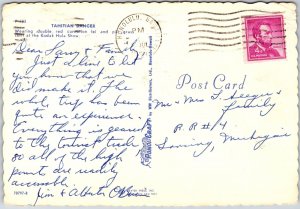 TAHITIAN DANCER
Wearing double red carnation lei and
seen at the Kodak Hula Show.
PM
Dear Larry & Family,
Just a line to let
you know that we
did make it. The
whole trip has been
quite an experience.
Everything is geared
to the tourist trade
so all of the high
points are readily
accessible.
Jim & Alberta
Post Card
Mr & Mrs L. Seeger
Family
R.R #4
Lansing, Michigan